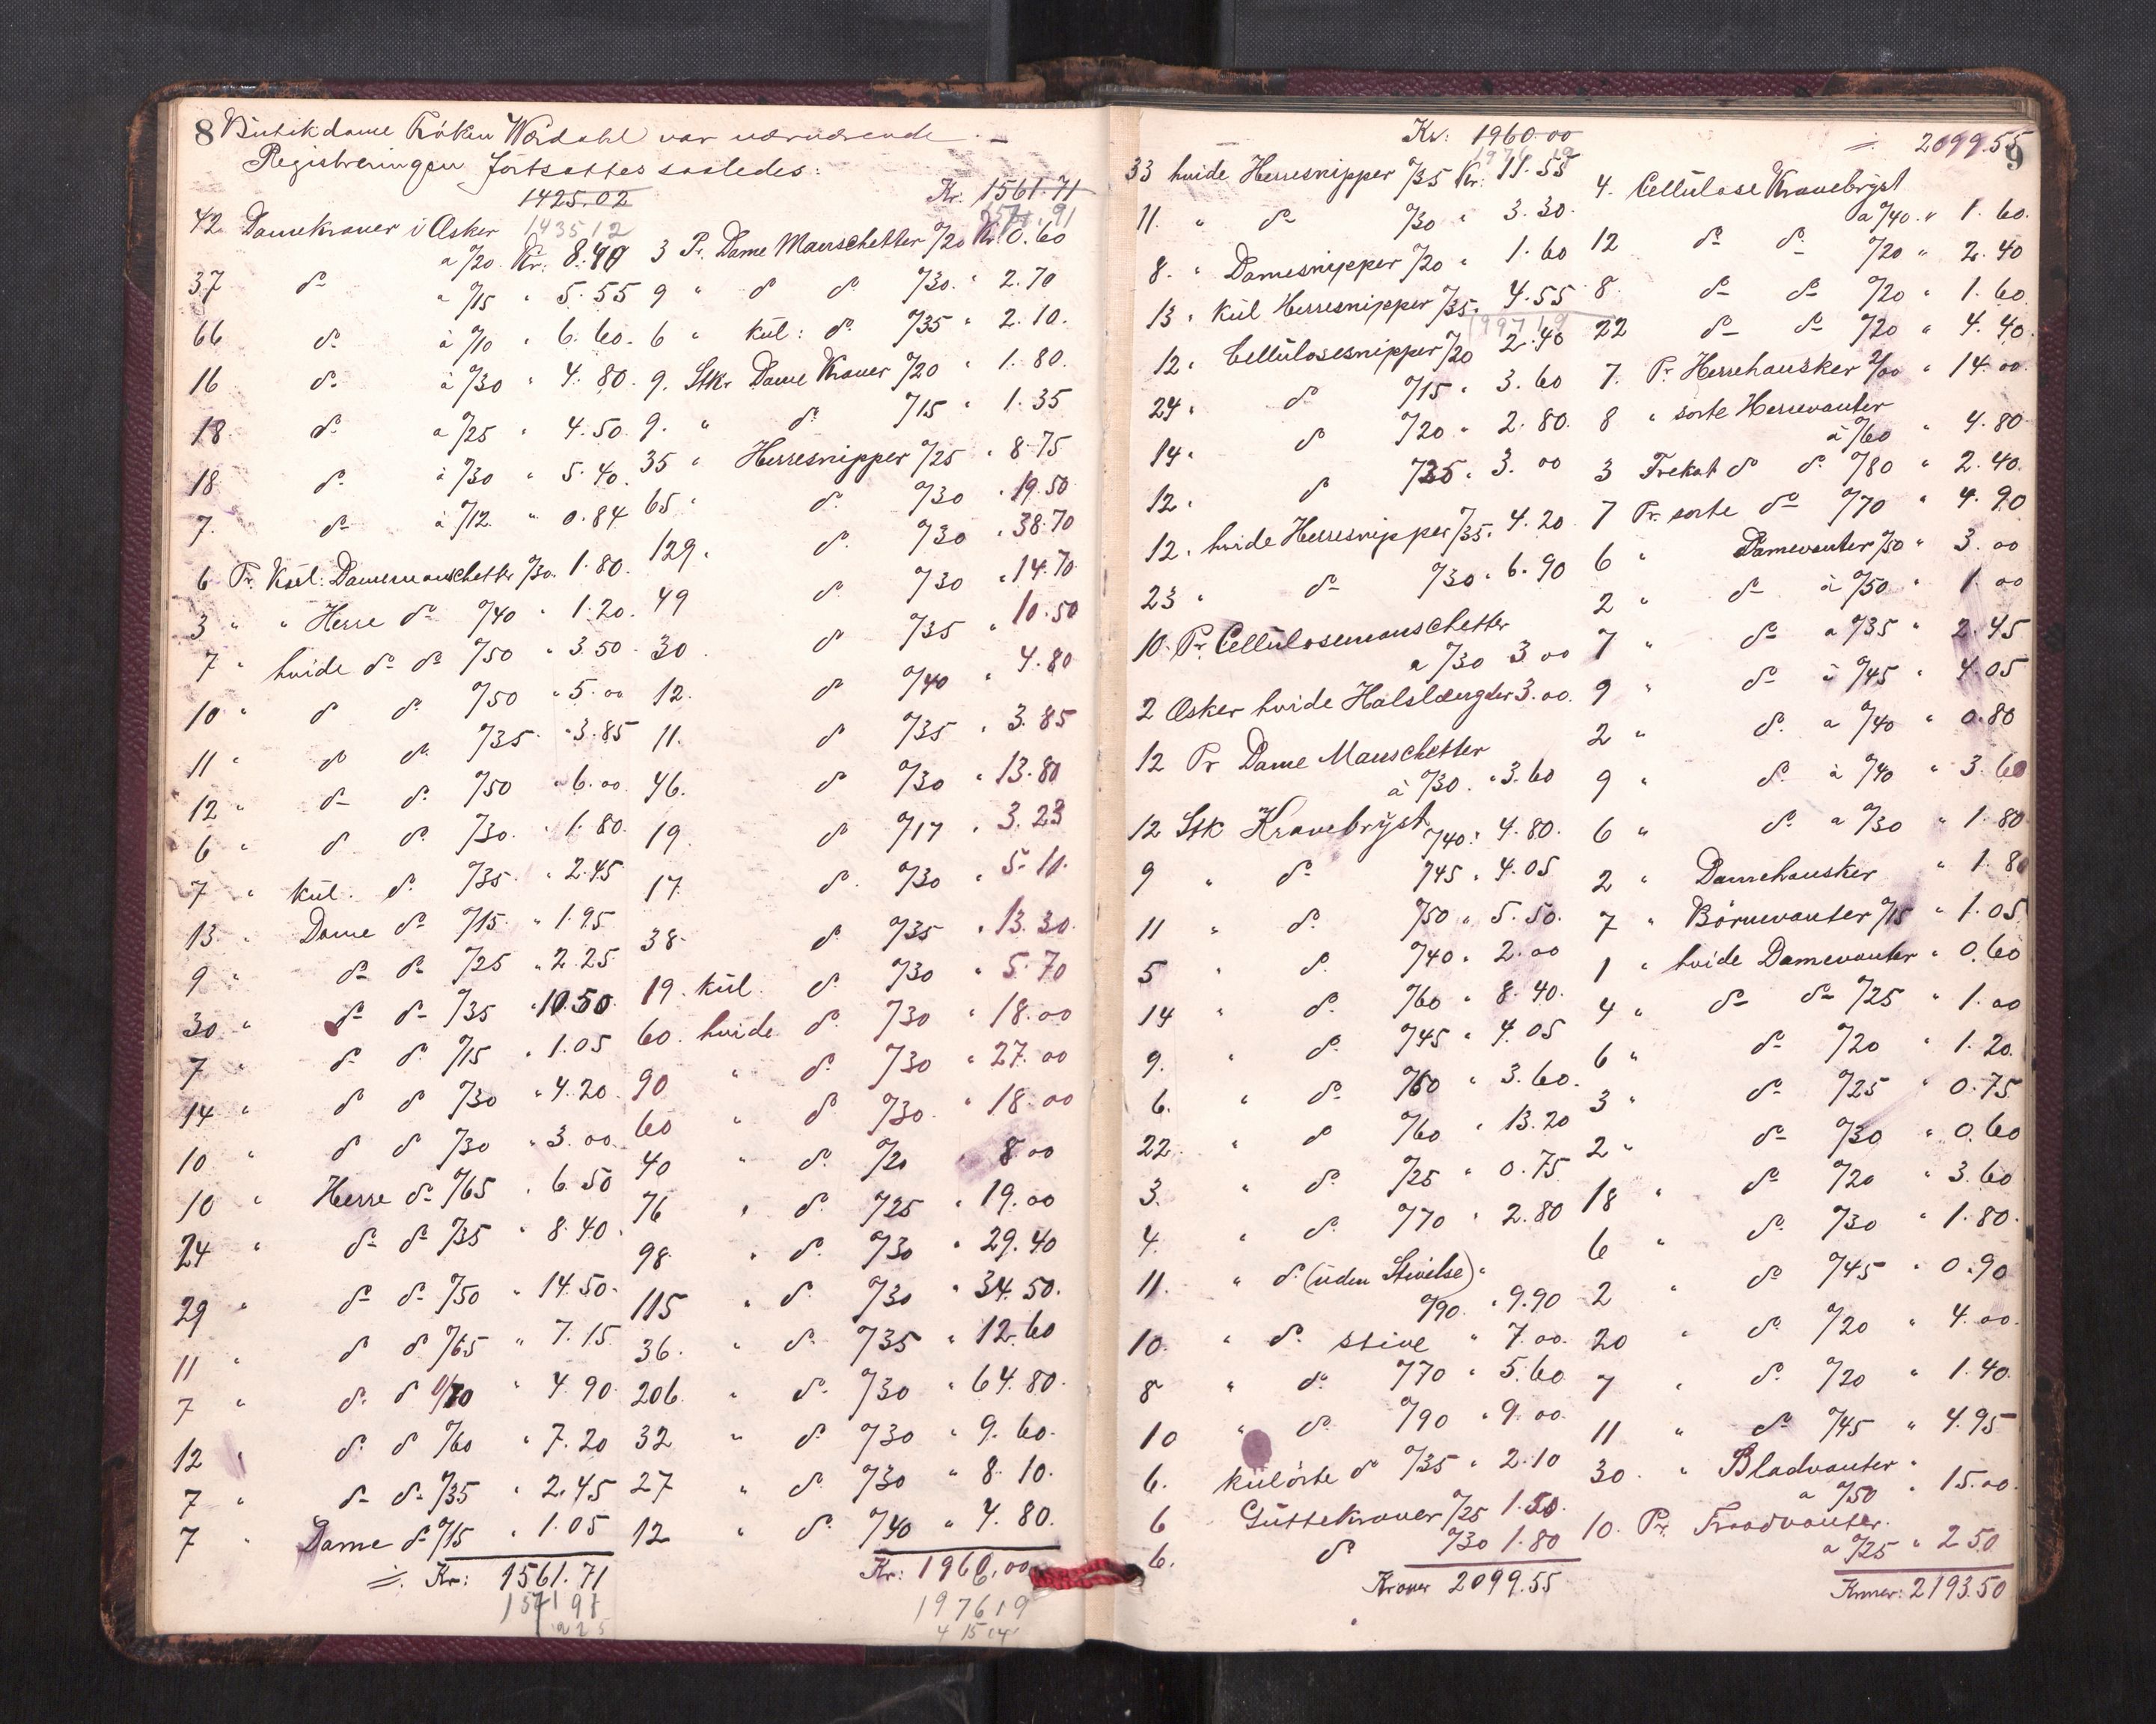 8
Butikdame Frøken Wærdahl var nærværende. –
Registreringen fortsattes saaledes:
1425.02
143512
42 Damekraver i Æsker
a /20. Kr: 8.40
37 do a /15 " 5.55
66 do à /10 " 6.60.
16 do à /30 " 4.80.
18 do a /25 " 4.50.
18 do à /30 " 5.40.
7. do à /12. " 0.84
6 Pr. Kül: Damemanschetter /30. 1.80.
3 " " Herre do /40 " 1.20.
7 " hvide do do /50 " 3.50.
10 " do do /50 " 5.00
11 " do do /35 " 3.85
12 " do do /50 " 6.00
6 " do do /30. " 1.80.
7 " kül. do /35 " 2.45
13 " Dame do /15 " 1.95
9 " do do /25 " 2.25
30 " do do /35 " 10.50.
7 " do do /15 " 1.05
14 " do do /30 " 4.20.
10 " do do /30 " 3.00
10 " Herre do /65 " 6.50
24 " do do /35 " 8.40.
29 " do do /50 " 14.50.
11 " do do /65 " 7.15
7 " do do /70 " 4.90
12 " do do /60 " 7.20
7 " do do /35 " 2.45
7 " Dame do /15 " 1.05
=. Kr: 1561.71
157191
Kr. 1561.71
3 Pr. Dame Manschetter /20 Kr 0.60
9 " do do /30. " 2.70
6 " kül: do /35 " 2.10.
9. Stkr Dame Kraver /20 " 1.80.
9. " do /15 " 1.35
35 " Herresnipper /25 " 8.75
65 " do /30 " 19.50
129. do /30 " 38.70
49 do /30 " 14.70
30. do /35 " 10.50
12. do /40 " 4.80
11. do /35 " 3.85
46. do /30 " 13.80
19. do /17 " 3.23
17. do /30 " 5.10.
38. do /35 " 13.30.
19. kül. do /30 " 5.70
60. hvide do /30 " 18.00
90 " do /30 " 27.00
60 " do /30. " 18.00
40 " do /20 " 8.00
76 " do /25 " 19.00
98. " do /30 " 29.40
115 " do /30 " 34.50.
36. " do /35 " 12.60
206. " do /30 " 64.80.
32 " do /30 " 9.60.
27 " do /30 " 8.10.
12 " do /40 " 4.80.
Kr: 1960.00
197619
9
Kr: 1960.00
33 hvide Herresnipper /35 Kr: 11.55
11. " do /30 " 3.30.
8. " Damesnipper /20 " 1.60
13 " kül Herresnipper /35. 4.55
199719
12. Cellülosesnipper /20 2.40
24 " do /15 " 3.60
14 " do /20 " 2.80.
12. do /25 " 3.00
12. hvide Herresnipper /35. 4.20
23 " do /30 " 6.90
10. Pr. Cellülosemanschetter
a /30 3.00
2 Æsker hvide Halslængder 3.00.
12 Pr Dame Manschetter
à /30. " 3.60
12 Stk Kravebryst /40: 4.80.
9 " do /45 " 4.05
11 " do /50 " 5.50.
5 " do /40 " 2.00
14 " do /60 " 8.40.
9. " do /45 " 4.05
6. " do /60 " 3.60.
22. " do /60 " 13.20
3. " do /25 " 0.75
4. " do /70 " 2.80
11. " do (üden Stivelse) "
/90. " 9.90
10. " do stive " 7.00.
8 " do /70 " 5.60
10 " do /90 " 9.00.
6. külørte do /35 " 2.10
6 Güttekraver /25 1.50.
6. do /30 1.80
Kroner 2099.55
=. 2099.55
4. Cellülose Kravebryst
a /40. " 1.60.
12 do do /20 " 2.40
8 do do /20 " 1.60.
22 do do /20 " 4.40.
7. Pr. Herrehansker 2/00 " 14.00.
8 " sorte Herrevanter
à /60 " 4.80
3 Trekot do do /80 " 2.40.
7 Pr. sorte do /70 " 4.90
6 " Damevanter /50 " 3.00
2 " do à /50 " 1.00
7 " do a /35 " 2.45
9 " do à /45 " 4.05
2 " do a /40 " 0.80
9 " do à /40 " 3.60
6 " do a /30 " 1.80
2 " Damehansker " 1.80
7 " Børnevanter /15 " 1.05
1 " hvide Damevanter " 0.60
4 " do do /25 " 1.00
6 " do /20 " 1.20.
3 " do /25 " 0.75
2 " do /30 " 0.60
18 " do /20 " 3.60
6 " do /30 " 1.80.
2 " do /45 " 0.90
20 " do /20 " 4.00.
7 " do /20 " 1.40.
11 " do /45 " 4.95
30. " Bladvanter "
a /50 " 15.00.
10. Pr. Traadvanter.
a /25 " 2.50
Kroner: 2193.50